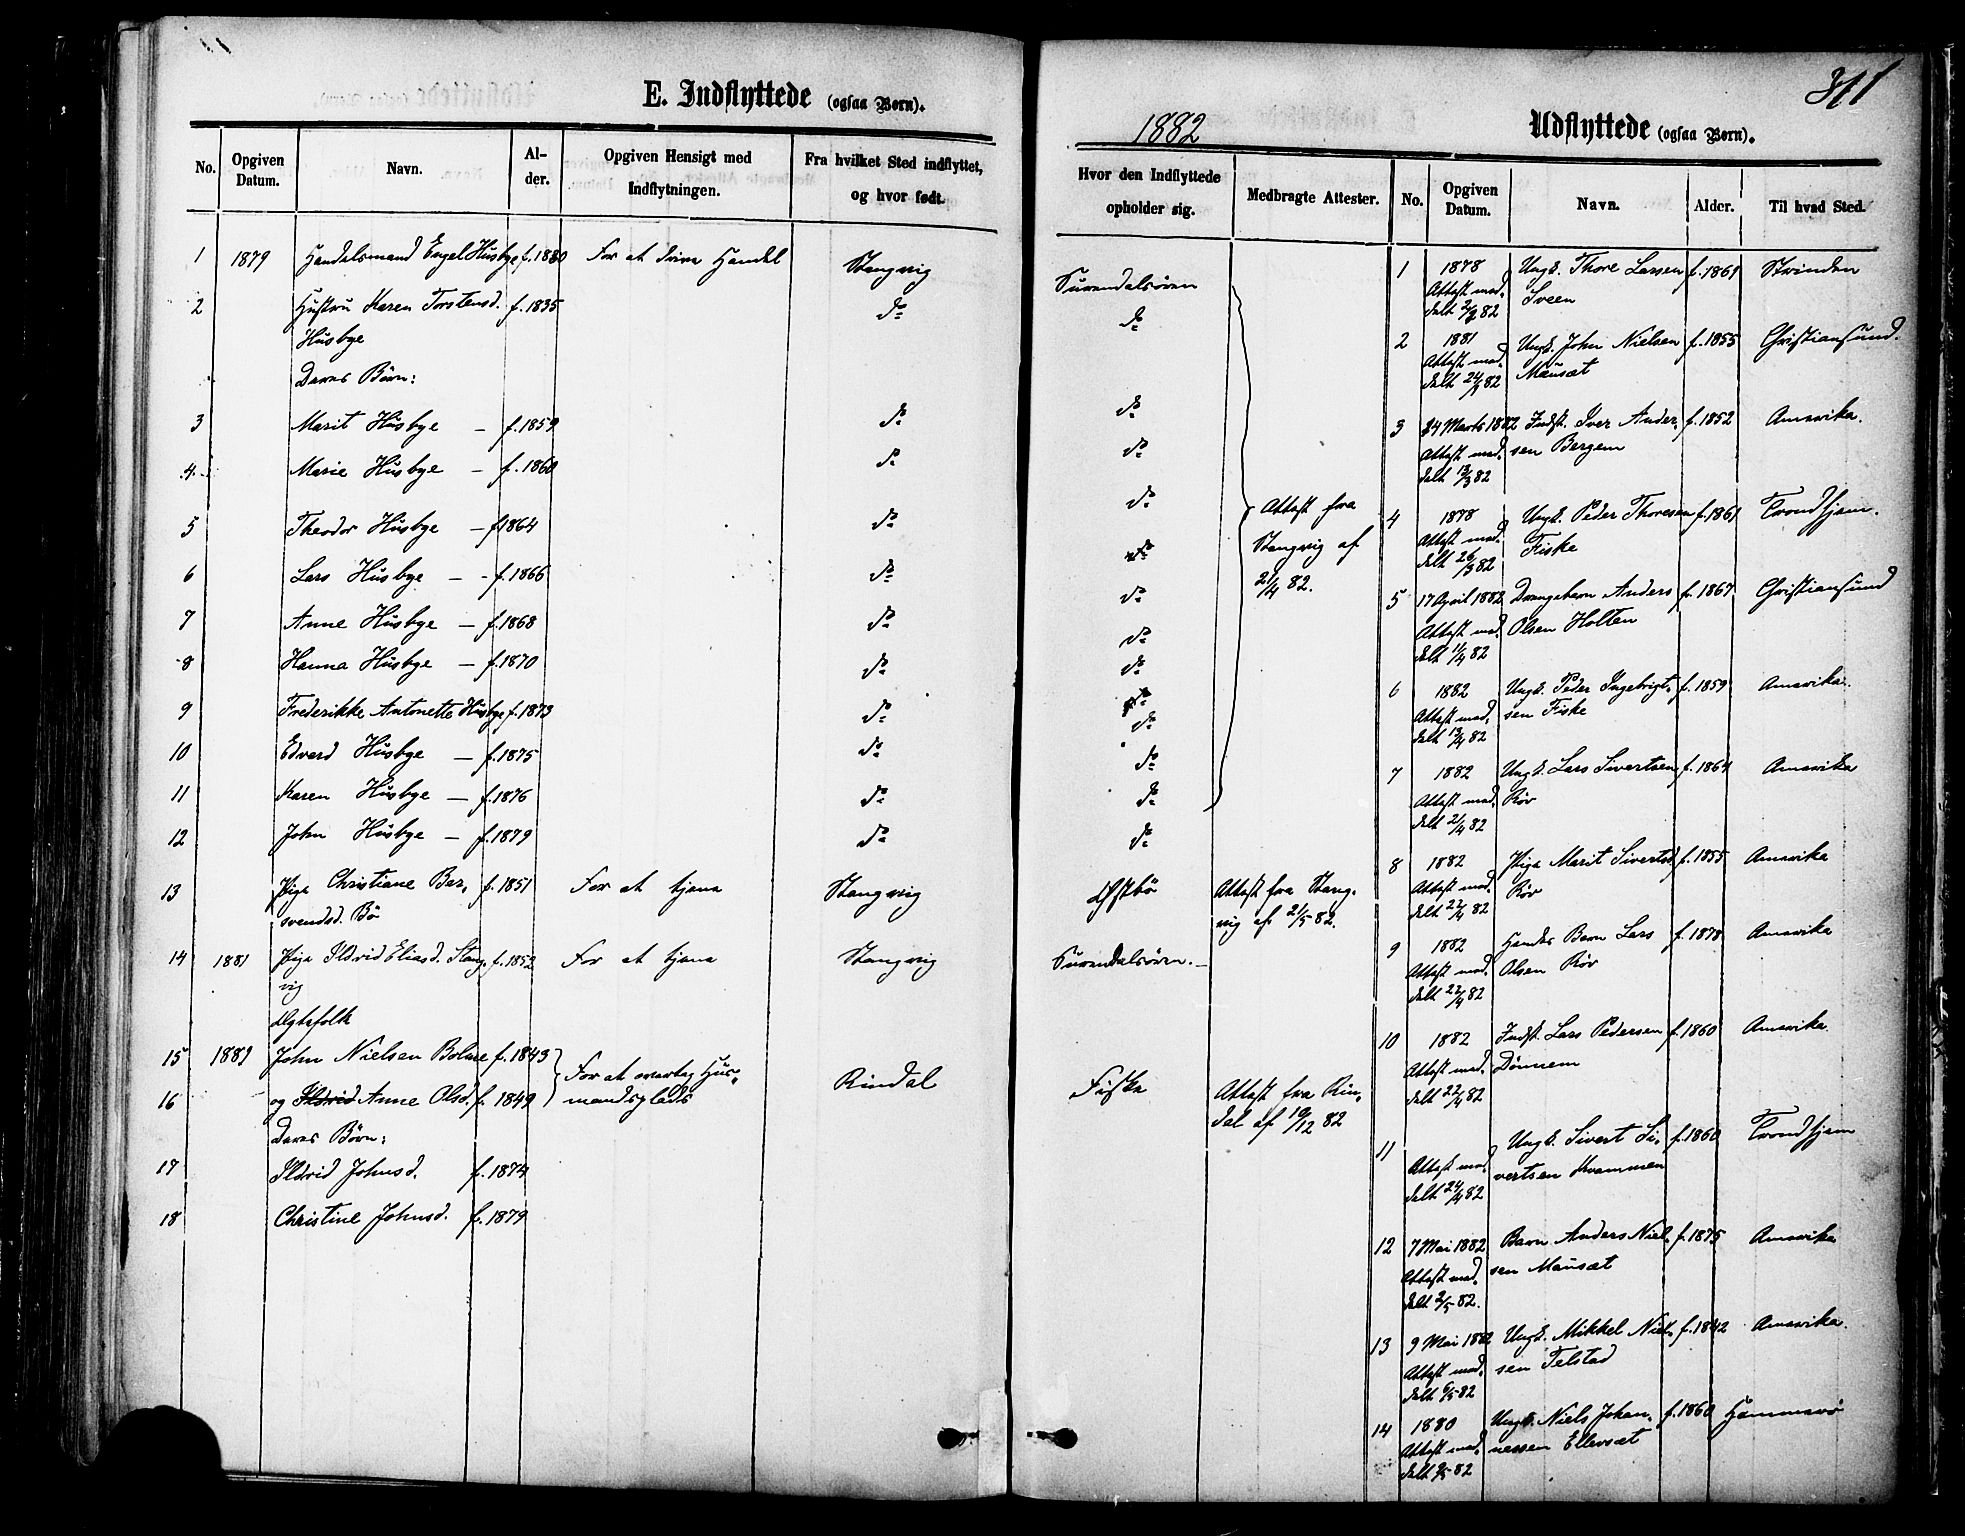 E. Indflyttede (ogsaa Børn).
No.
Opgiven Datum.
Navn.
Al-
der.
Opgiven Hensigt med
Indflytningen.
Fra hvilket Sted indflyttet,
og hvor født.
1 1879 Handelsmand Engel Husbye f. 1830 For at drive Handel Stangvig
2 Hustru Karen Torstensd. f. 1835 do
Husbye
Deres Børn:
3 Marit Husbye – f. 1859 do
4. Marie Husbye – f. 1860 do
5 Theodor Husbye – f. 1864 do
6 Lars Husbye – - f. 1866 do
7 Anne Husbye – f. 1868 do
8 Hanna Husbye – f. 1870 do
9 Frederikke Antonette Husbye f. 1873 do
10 Edvard Husbye – f. 1875 do
11 Karen Husbye – f. 1876 do
12 John Husbye – f. 1879 do
13 Pige Christiane Ber- f. 1851 For at tjene Stangvig
svendsd. Bø
14 1881 Pige Ildrid Eliasd. Stang- f. 1852 For at tjene Stangvig
vig
Ægtefolk
15 1881 John Nielsen Bolme f. 1843 For at overtage Hus-
16 og Ildrid Anne Olsd. f. 1849 mandsplads Rindal
Deres Børn:
17 Ildrid Johnsd. f. 1874
18 Christine Johnsd. f. 1879
311
1882
Udflyttede (ogsaa Børn).
Hvor den Indflyttede
opholder sig.
Medbragte Attester.
Surendalsøren
do
do
do
do Attest fra
do Stangvig af
do 21/4 82.
do
do
do
do
do
do
do
Østbø Attest fra Stang-
vig af 21/5 82.
Surendalsøren.
Fiske Attest fra Rin-
dal af 19/12 82
No.
Opgiven Datum.
Navn.
Alder.
Til hvad Sted.
1 1878 Ungk. Thore Larsen f. 1861 Strinden
Attest med- Sveen
delt 82
2 1881 Ungk. John Nielsen f. 1855 Christiansund.
Attest med- Mausæt
delt 82
3 24 Marts 1882 Indst. Iver Ander- f. 1852 Amerika.
Attest med- sen Bergem
delt 13/3 82
4 1878 Ungk. Peder Thoresen f. 1861 Trondhjem.
Attest med- Fiske
delt 26/3 82
5 17 April 1882 Drengebarn Anders f. 1867 Christiansund
Attest med- Olsen Holten
delt 11/4 82
6 1882 Ungk. Peder Ingebrigt- f. 1859 Amerika.
Attest med- sen Fiske
delt 13/4 82
7 1882 Ungk. Lars Sivertsen f. 1864 Amerika
Attest med- Røv
delt 21/4 82
8 1882 Pige Marit Sivertsd. f. 1855 Amerika
Attest med- Røv
delt 22/4 82
9 1882 Hendes Barn Lars f. 1878 Amerika
Attest med- Olsen Røv
delt 22/4 82
10 1882 Indst. Lars Pedersen f. 1860 Amerika
Attest med- Dønnem
delt 22/4 82
11 Ungk. Sivert Si- f. 1860 Trondhjem
Attest med- vertsen Kvammen
delt 24/4 82
12 7 Mai 1882 Barn Anders Niel- f. 1875 Amerika
Attest med- sen Mausæt
delt 2/5 82.
13 9 Mai 1882 Ungk. Mikkel Niel- f. 1842 Amerika.
Attest med- sen Telstad
delt 6/5 82
14 1880 Ungk. Niels Johan- f. 1860 Hammerø
Attest med- nessen Ellevsæt
delt 82